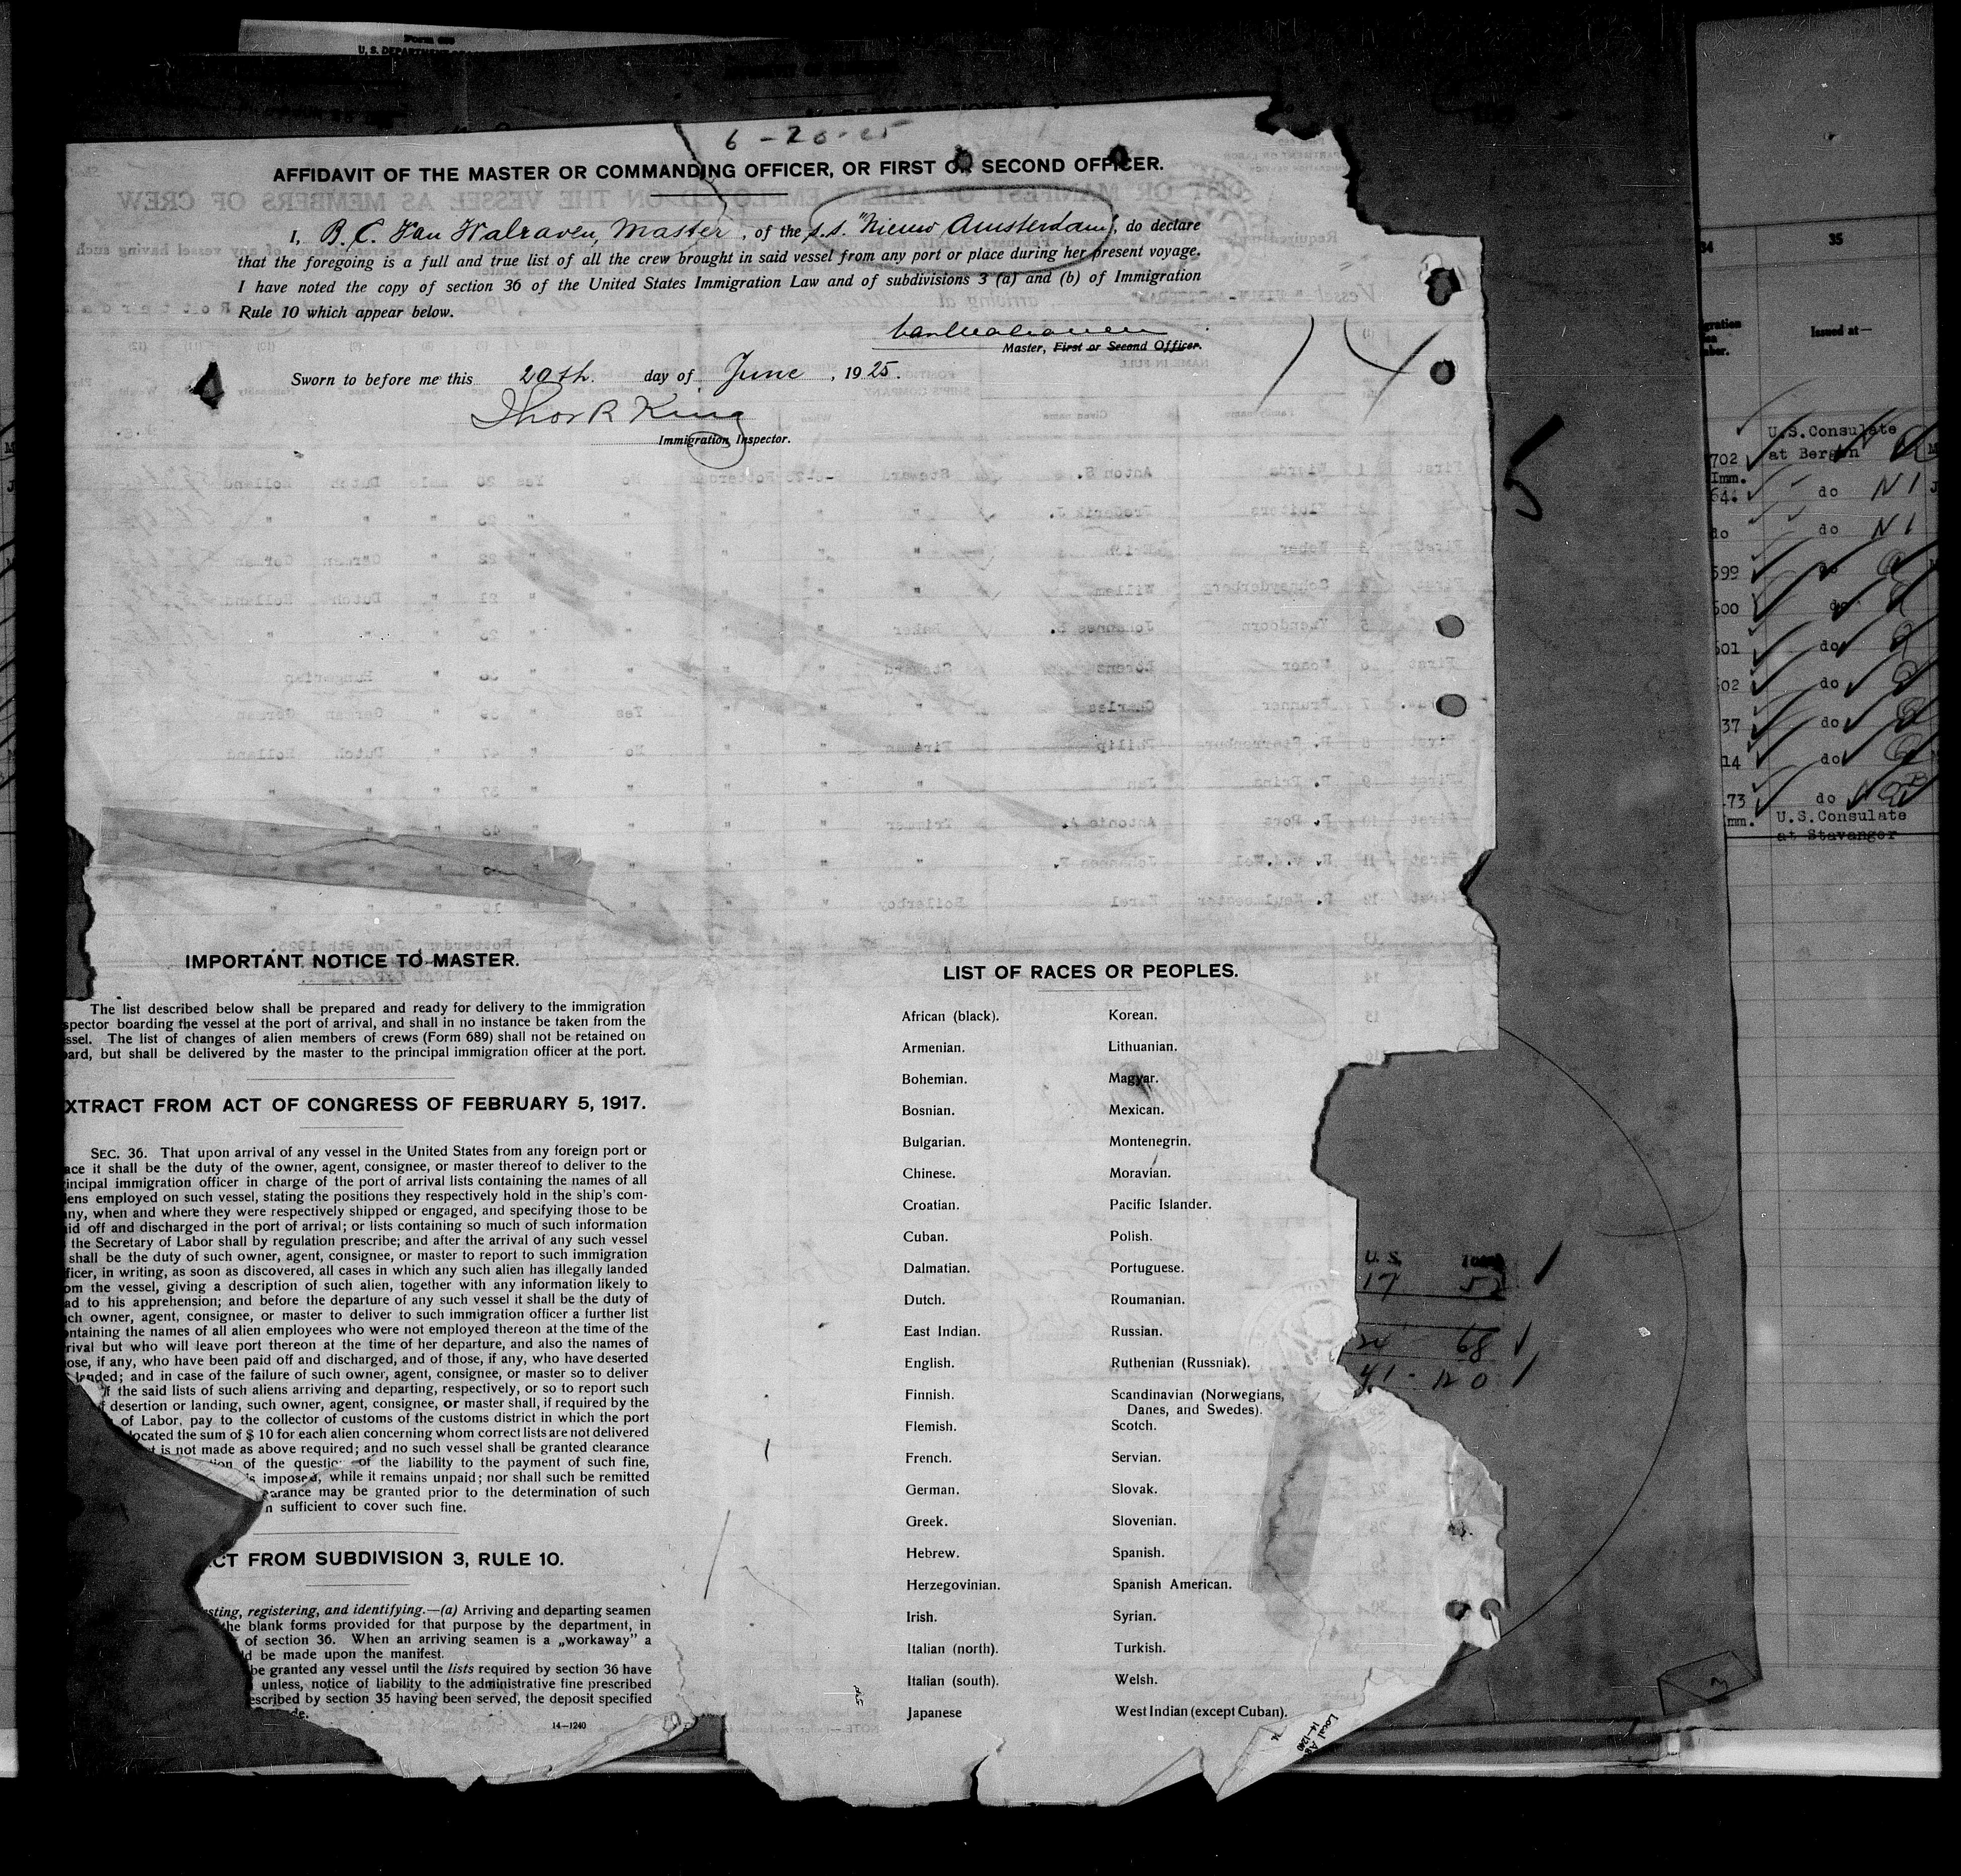 Form 689
U. S. DEPARTMENT
6-20-25
AFFIDAVIT OF THE MASTER OR COMMANDING OFFICER, OR FIRST OR SECOND OFFICER.
I, B. C. Van Walraven, Master, of the s.s. "Nieuw Amsterdam", do declare
that the foregoing is a full and true list of all the crew brought in said vessel from any port or place during her present voyage.
I have noted the copy of section 36 of the United States Immigration Law and of subdivisions 3 (a) and (b) of Immigration
Rule 10 which appear below.
Master, First or Second Officer.
Sworn to before me this 20th. day of June, 1925.
Thos R King
Immigration Inspector.
14
5
IMPORTANT NOTICE TO MASTER.
The list described below shall be prepared and ready for delivery to the immigration
spector boarding the vessel at the port of arrival, and shall in no instance be taken from the
ssel. The list of changes of alien members of crews (Form 689) shall not be retained on
ard, but shall be delivered by the master to the principal immigration officer at the port.
XTRACT FROM ACT OF CONGRESS OF FEBRUARY 5, 1917.
SEC. 36. That upon arrival of any vessel in the United States from any foreign port or
ace it shall be the duty of the owner, agent, consignee, or master thereof to deliver to the
incipal immigration officer in charge of the port of arrival lists containing the names of all
iens employed on such vessel, stating the positions they respectively hold in the ship's com-
ny, when and where they were respectively shipped or engaged, and specifying those to be
id off and discharged in the port of arrival; or lists containing so much of such information
the Secretary of Labor shall by regulation prescribe; and after the arrival of any such vessel
shall be the duty of such owner, agent, consignee, or master to report to such immigration
ficer, in writing, as soon as discovered, all cases in which any such alien has illegally landed
om the vessel, giving a description of such alien, together with any information likely to
ad to his apprehension; and before the departure of any such vessel it shall be the duty of
ch owner, agent, consignee, or master to deliver to such immigration officer a further list
ntaining the names of all alien employees who were not employed thereon at the time of the
rival but who will leave port thereon at the time of her departure, and also the names of
ose, if any, who have been paid off and discharged, and of those, if any, who have deserted
landed; and in case of the failure of such owner, agent, consignee, or master so to deliver
f the said lists of such aliens arriving and departing, respectively, or so to report such
f desertion or landing, such owner, agent, consignee, or master shall, if required by the
of Labor, pay to the collector of customs of the customs district in which the port
ocated the sum of $ 10 for each alien concerning whom correct lists are not delivered
t is not made as above required; and no such vessel shall be granted clearance
tion of the question of the liability to the payment of such fine,
s imposed, while it remains unpaid; nor shall such be remitted
earance may be granted prior to the determination of such
n sufficient to cover such fine.
CT FROM SUBDIVISION 3, RULE 10.
sting, registering, and identifying.—(a) Arriving and departing seamen
the blank forms provided for that purpose by the department, in
of section 36. When an arriving seamen is a „workaway" a
ld be made upon the manifest.
be granted any vessel until the lists required by section 36 have
unless, notice of liability to the administrative fine prescribed
escribed by section 35 having been served, the deposit specified
de.
14—1240
LIST OF RACES OR PEOPLES.
African (black). Korean.
Armenian. Lithuanian.
Bohemian. Magyar.
Bosnian. Mexican.
Bulgarian. Montenegrin.
Chinese. Moravian.
Croatian. Pacific Islander.
Cuban. Polish.
Dalmatian. Portuguese.
Dutch. Roumanian.
East Indian. Russian.
English. Ruthenian (Russniak).
Finnish. Scandinavian (Norwegians,
Danes, and Swedes).
Flemish. Scotch.
French. Servian.
German. Slovak.
Greek. Slovenian.
Hebrew. Spanish.
Herzegovinian. Spanish American.
Irish. Syrian.
Italian (north). Turkish.
Italian (south). Welsh.
Japanese West Indian (except Cuban).
14—1240
U.S. Total
17 52
24 68
41 - 120
34 35
Issued at—
U.S.Consulate
702 at Bergen
Imm.
64. do N I
do do N I
599 do
600 do
601 do
02 do
37 do
14 do
73 do
mm. U.S.Consulate
at Stavanger